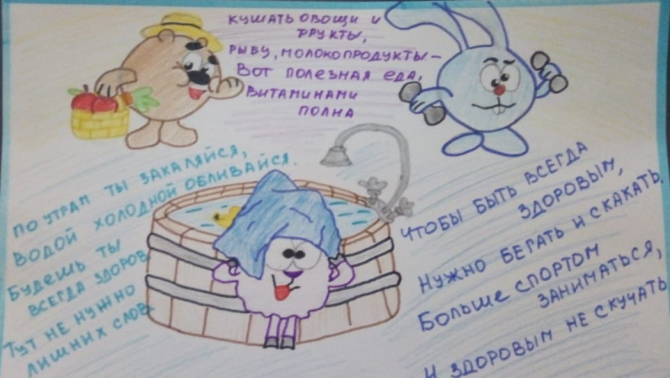 КУШАТЬ ОВОЩИ И
ФРУКТЫ,
РЫБУ, МОЛОКОПРОДУКТЫ –
ВОТ ПОЛЕЗНАЯ ЕДА,
ВИТАМИНАМИ
ПОЛНА
ПО УТРАМ ТЫ ЗАКАЛЯЙСЯ,
ВОДОЙ ХОЛОДНОЙ ОБЛИВАЙСЯ.
БУДЕШЬ ТЫ
ВСЕГДА ЗДОРОВ
ТУТ НЕ НУЖНО
ЛИШНИХ СЛОВ.
ЧТОБЫ БЫТЬ ВСЕГДА
ЗДОРОВЫМ,
НУЖНО БЕГАТЬ И СКАКАТЬ.
БОЛЬШЕ СПОРТОМ
ЗАНИМАТЬСЯ,
И ЗДОРОВЫМ НЕ СКУЧАТЬ